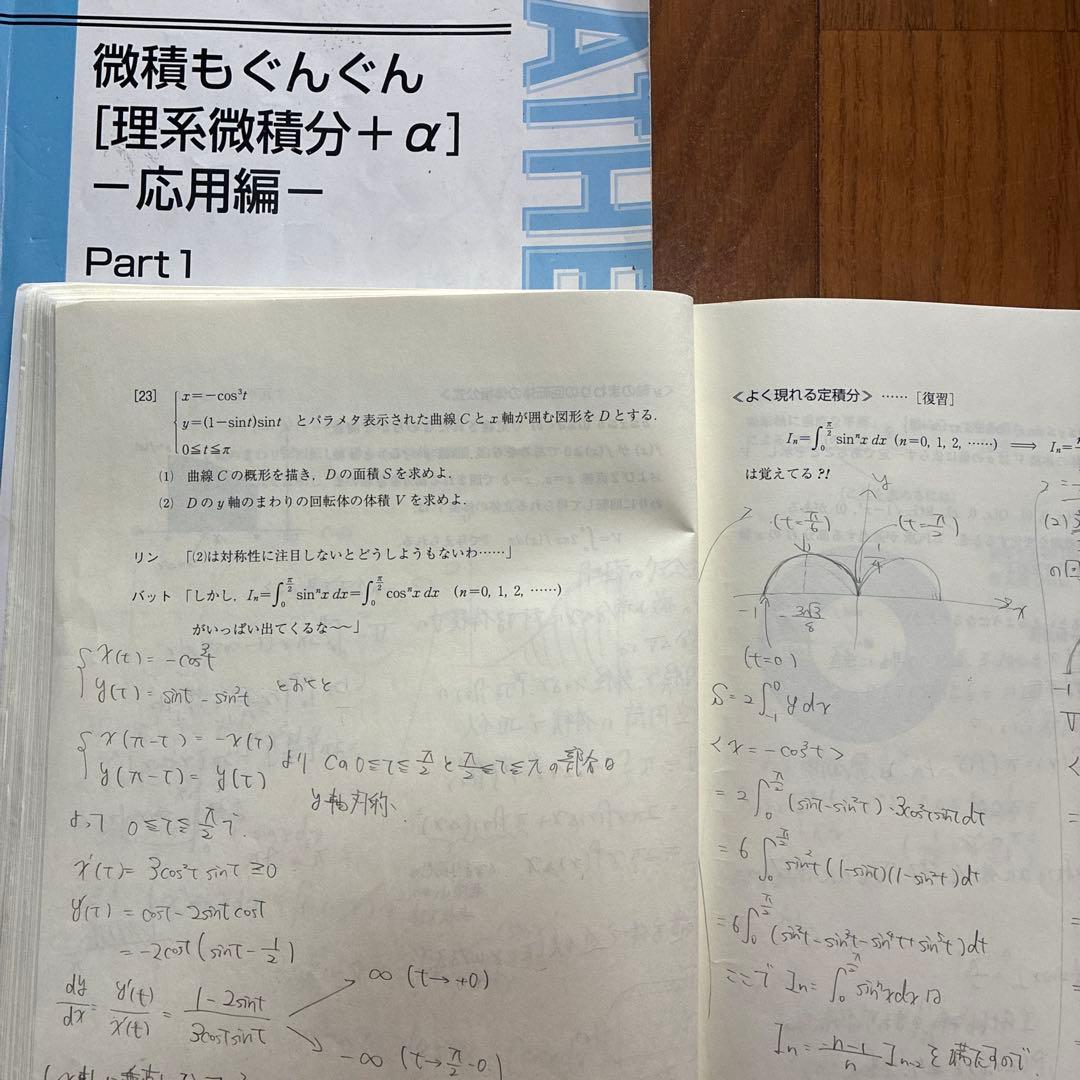 微積もぐんぐん
[理系微積分+α]
-応用編-
Part 1
MATHE
[23] x=-cos³t
y=(1-sint)sint とパラメタ表示された曲線Cとx軸が囲む図形をDとする.
0≦t≦π
(1) 曲線Cの概形を描き, Dの面積Sを求めよ.
(2) Dのy軸のまわりの回転体の体積Vを求めよ.
リン 「(2)は対称性に注目しないとどうしようもないわ……」
バット 「しかし, Iₙ=∫₀^{π/2} sinⁿx dx=∫₀^{π/2} cosⁿx dx (n=0, 1, 2, ……)
がいっぱい出てくるな〜〜」
x(t) = -cos³t
y(t) = sint - sin²t とおくと
x(π-t) = -x(t)
y(π-t) = y(t) より Cの 0≦t≦π/2 と π/2≦t≦π の部分は
y軸対称、
よって 0≦t≦π/2 で.
x'(t) = 3cos²t sint ≧0
y'(t) = cost - 2sint cost
= -2cost (sint - 1/2)
dy/dx = y'(t)/x'(t) = (1-2sint)/(3cost sint)
∞ (t→+0)
-∞ (t→π/2-0)
≪よく現れる定積分≫ …… [復習]
Iₙ=∫₀^{π/2} sinⁿx dx (n=0, 1, 2, ……) ⟹ Iₙ=
は覚えてる?!
y
(t=π/6) (t=π/2)
1/4
-1 -3√3/8 x
(t=0)
S = 2∫₋₁⁰ y dx
<x = -cos³t>
= 2∫₀^{π/2} (sint-sin²t)・3cos²t sint dt
= 6∫₀^{π/2} sin²t (1-sint)(1-sin²t) dt
= 6∫₀^{π/2} (sin²t - sin³t - sin⁴t + sin⁵t) dt
ここで Iₙ = ∫₀^{π/2} sinⁿx dx は
Iₙ = (n-1)/n Iₙ₋₂ を満たすので.
(2)